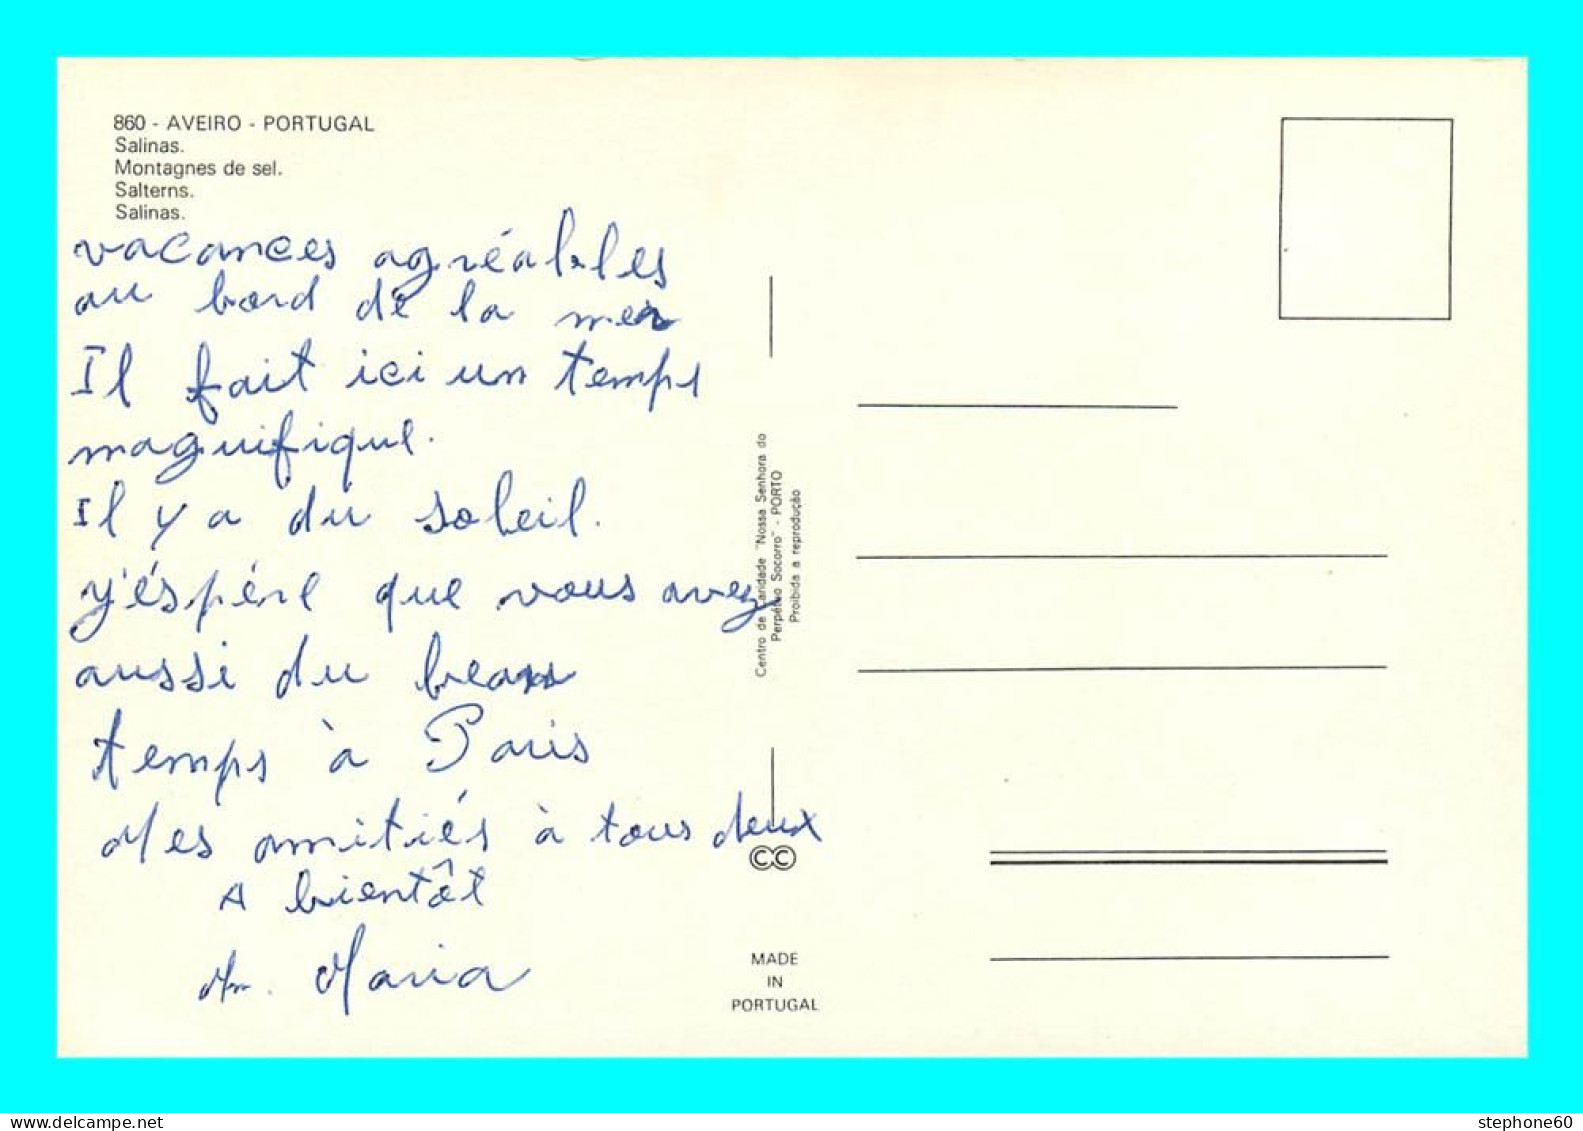 860 - AVEIRO - PORTUGAL
Salinas.
Montagnes de sel.
Salterns.
Salinas.
vacances agréables
au bord de la mer
Il fait ici un temps
magnifique.
Il y a du soleil.
j'éspére que vous avez
aussi du beau
temps à Paris
Mes amitiés à tous deux
A bientôt
Maria
Centro de Caridade "Nossa Senhora do
Perpétuo Socorro" - PORTO
Proibida a reprodução
CC
MADE
IN
PORTUGAL
https://www.delcampe.net
stephone60